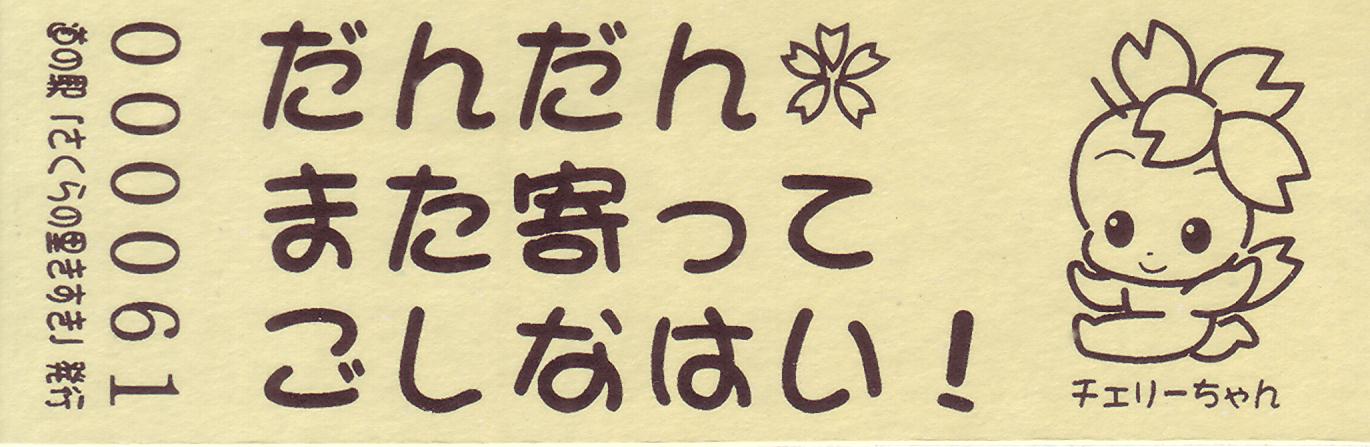 だんだん
また寄って
ごしなはい！
チェリーちゃん
000061
道の駅「さくらの里きすき」発行